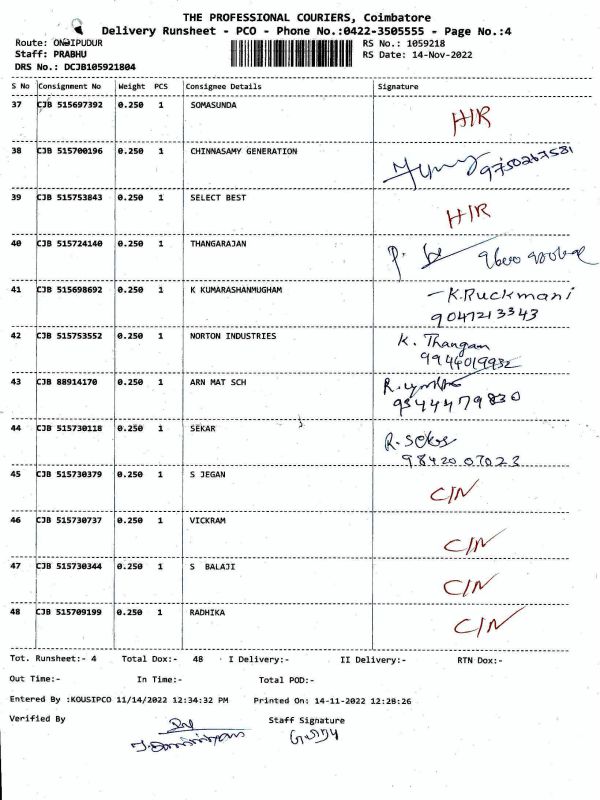 THE PROFESSIONAL COURIERS, Coimbatore
Delivery Runsheet - PCO - Phone No.:0422-3505555 - Page No.:4
Route: ONDIPUDUR
RS No.: 1059218
Staff: PRABHU
RS Date: 14-Nov-2022
DRS No.: DCJB105921804
S No Consignment No Weight PCS Consignee Details Signature
37 CJB 515697392 0.250 1 SOMASUNDA H/R
38 CJB 515700196 0.250 1 CHINNASAMY GENERATION
9750267581
39 CJB 515753843 0.250 1 SELECT BEST H/R
40 CJB 515724140 0.250 1 THANGARAJAN P.
41 CJB 515698692 0.250 1 K KUMARASHANMUGHAM - K.Ruckmani
9047213343
42 CJB 515753552 0.250 1 NORTON INDUSTRIES K. Thangam
9944019932
43 CJB 88914170 0.250 1 ARN MAT SCH
9344479830
44 CJB 515730118 0.250 1 SEKAR R. Sekar
9842007023
45 CJB 515730379 0.250 1 S JEGAN C/N
46 CJB 515730737 0.250 1 VICKRAM C/N
47 CJB 515730344 0.250 1 S BALAJI C/N
48 CJB 515709199 0.250 1 RADHIKA C/N
Tot. Runsheet:- 4 Total Dox:- 48 I Delivery:- II Delivery:- RTN Dox:-
Out Time:- In Time:- Total POD:-
Entered By :KOUSIPCO 11/14/2022 12:34:32 PM Printed On: 14-11-2022 12:28:26
Verified By Staff Signature